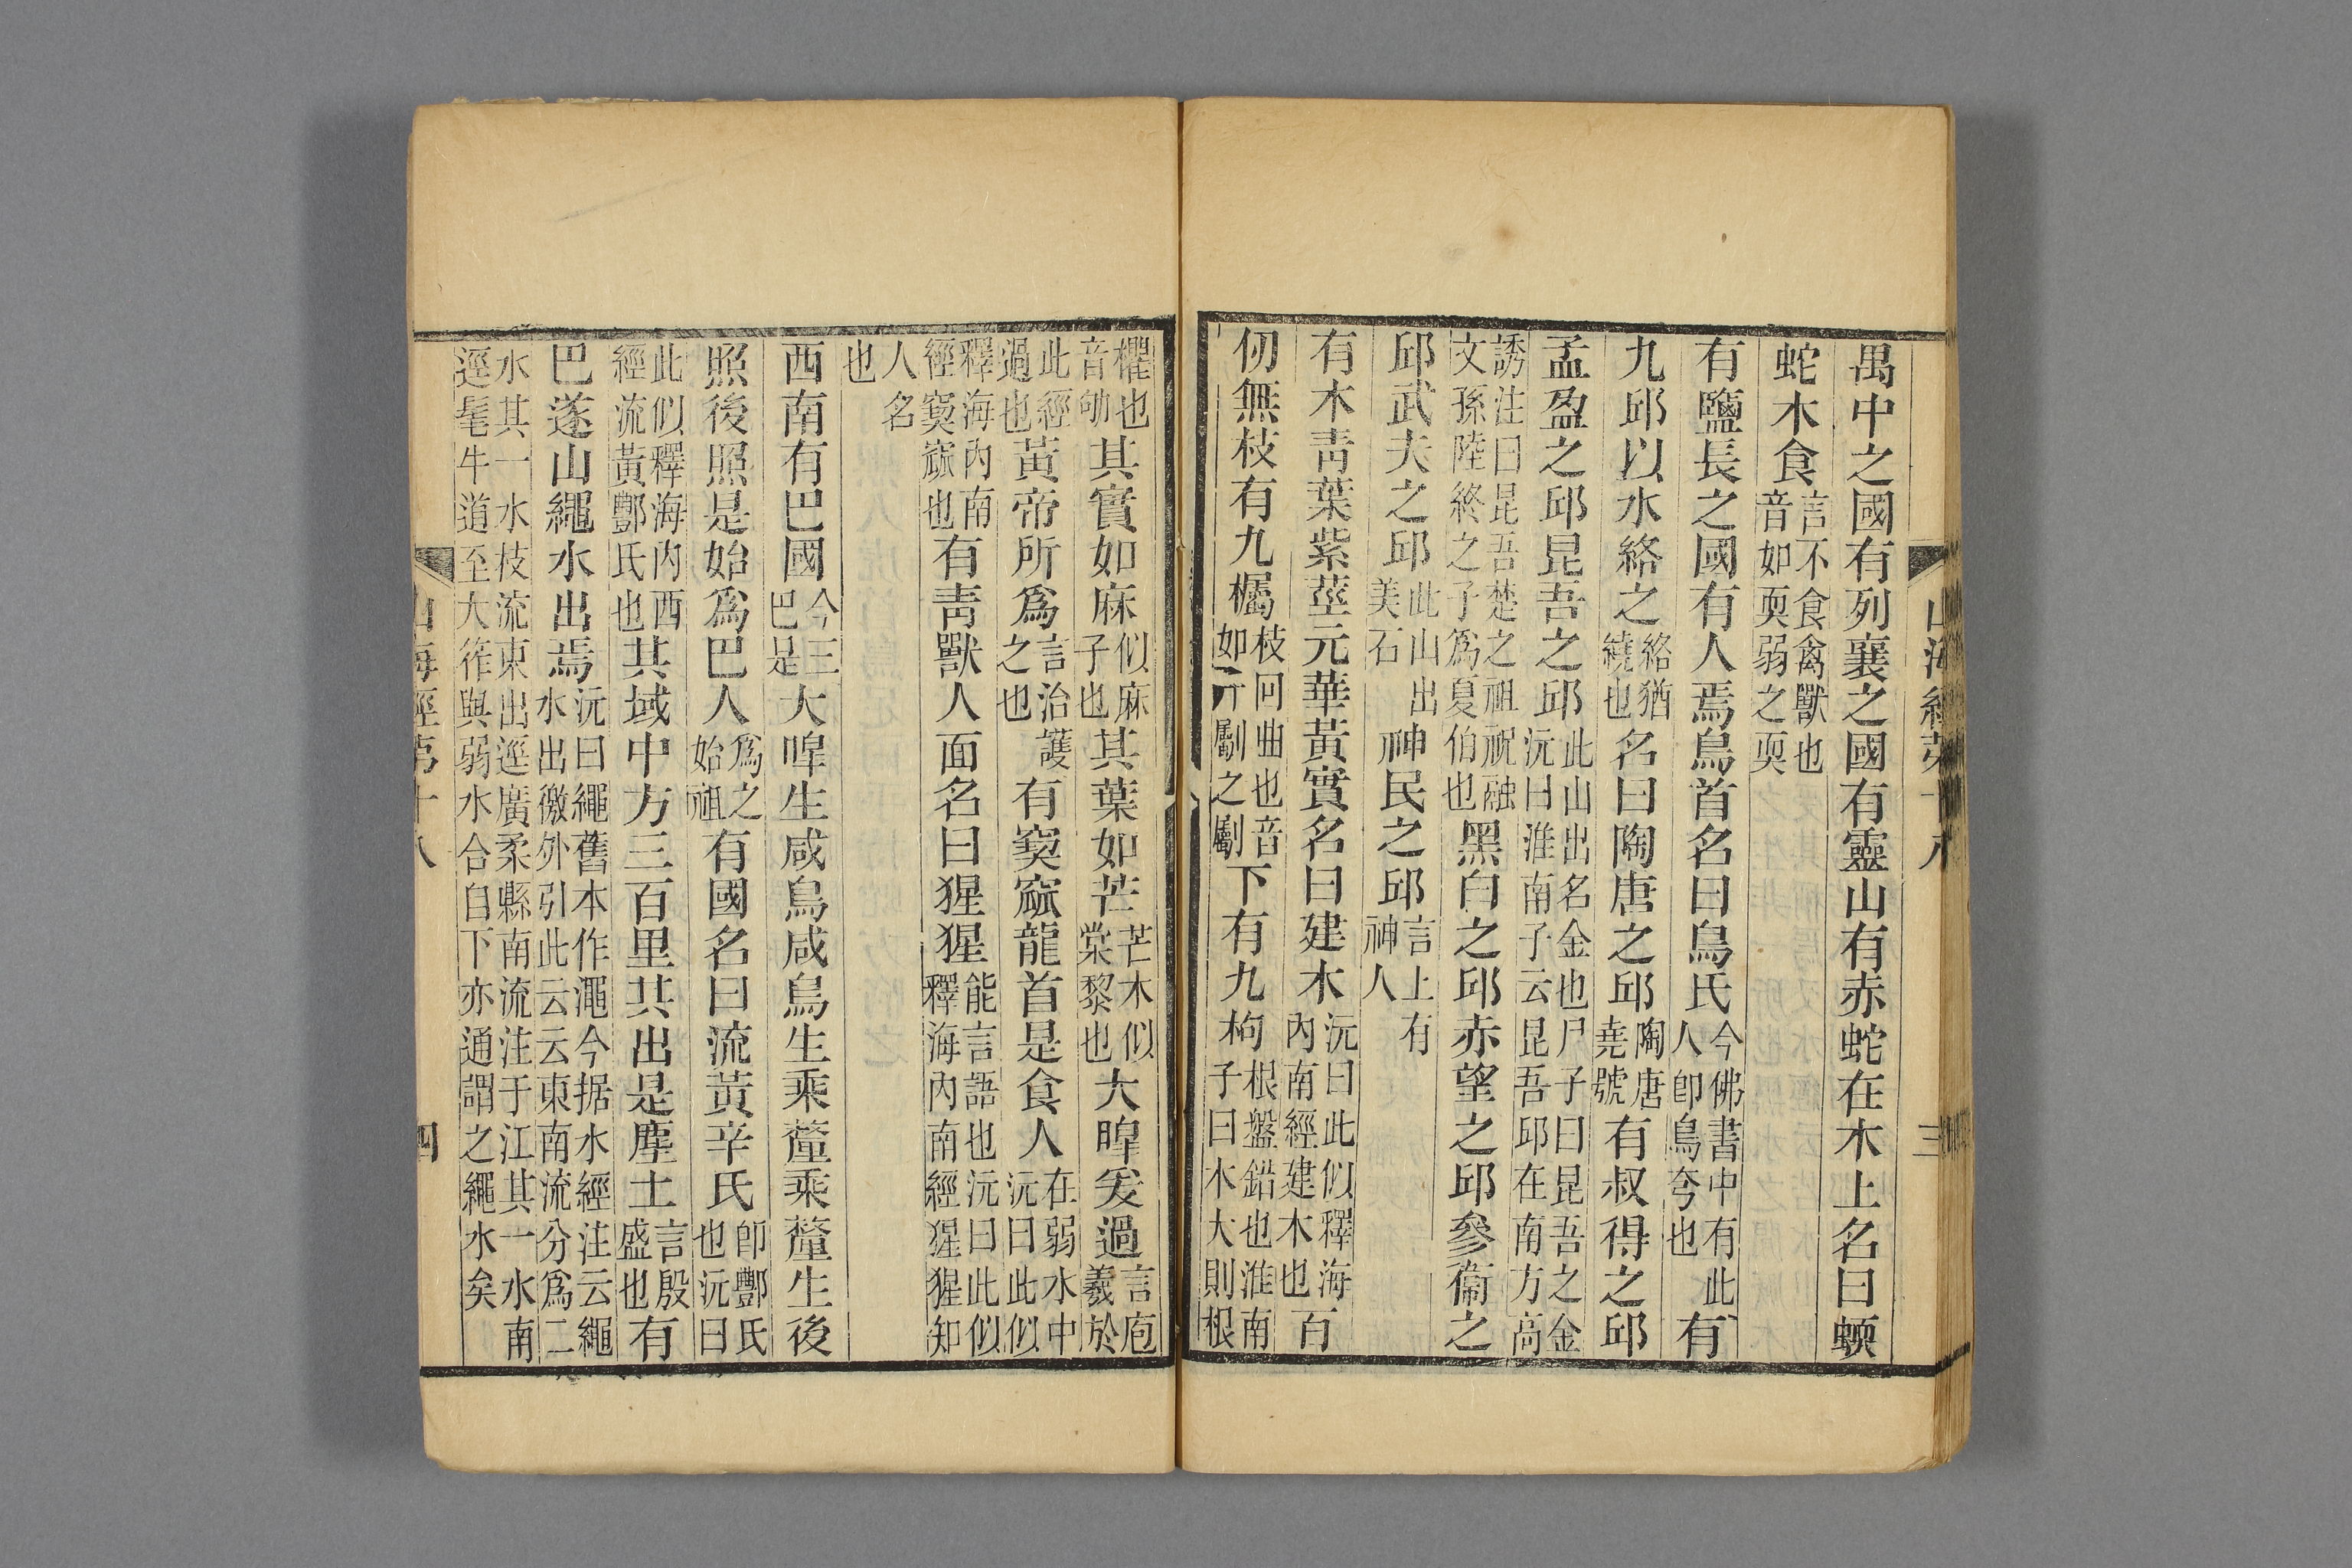 山海經第十八 三
禺中之國有列襄之國有靈山有赤蛇在木上名曰蝡
蛇木食言不食禽獸也音如耎弱之耎
有鹽長之國有人焉鳥首名曰鳥氏今佛書中有此人卽鳥夸也有
九邱以水絡之絡猶繞也名曰陶唐之邱陶唐堯號有叔得之邱
孟盈之邱昆吾之邱此山出名金也尸子曰昆吾之金沅曰淮南子云昆吾邱在南方高
誘注曰昆吾楚之祖祝融文孫陸終之子爲夏伯也黑白之邱赤望之邱參衞之
邱武夫之邱此山出美石神民之邱言上有神人
有木靑葉紫莖元華黃實名曰建木沅曰此似釋海內南經建木也百
仞無枝有九欘枝回曲也音如斤斸之斸下有九枸根盤錯也淮南子曰木大則根
欋也音劬其實如麻似麻子也其葉如芒芒木似棠黎也大皥爰過言庖羲於
此經過也黃帝所爲言治護之也有窫窳龍首是食人在弱水中沅曰此似
釋海內南經窫窳也有靑獸人面名曰猩猩能言語也沅曰此似釋海內南經猩猩知
人名也
西南有巴國今三巴是大皥生咸鳥咸鳥生乘釐乘釐生後
照後照是始爲巴人爲之始祖有國名曰流黃辛氏卽酆氏也沅曰
此似釋海內西經流黃酆氏也其域中方三百里其出是塵土言殷盛也有
巴遂山繩水出焉沅曰繩舊本作澠今据水經注云繩水出徼外引此云云東南流分爲二
水其一水枝流東出逕廣柔縣南流注于江其一水南逕髦牛道至大筰與弱水合自下亦通謂之繩水矣
山海經第十八 四